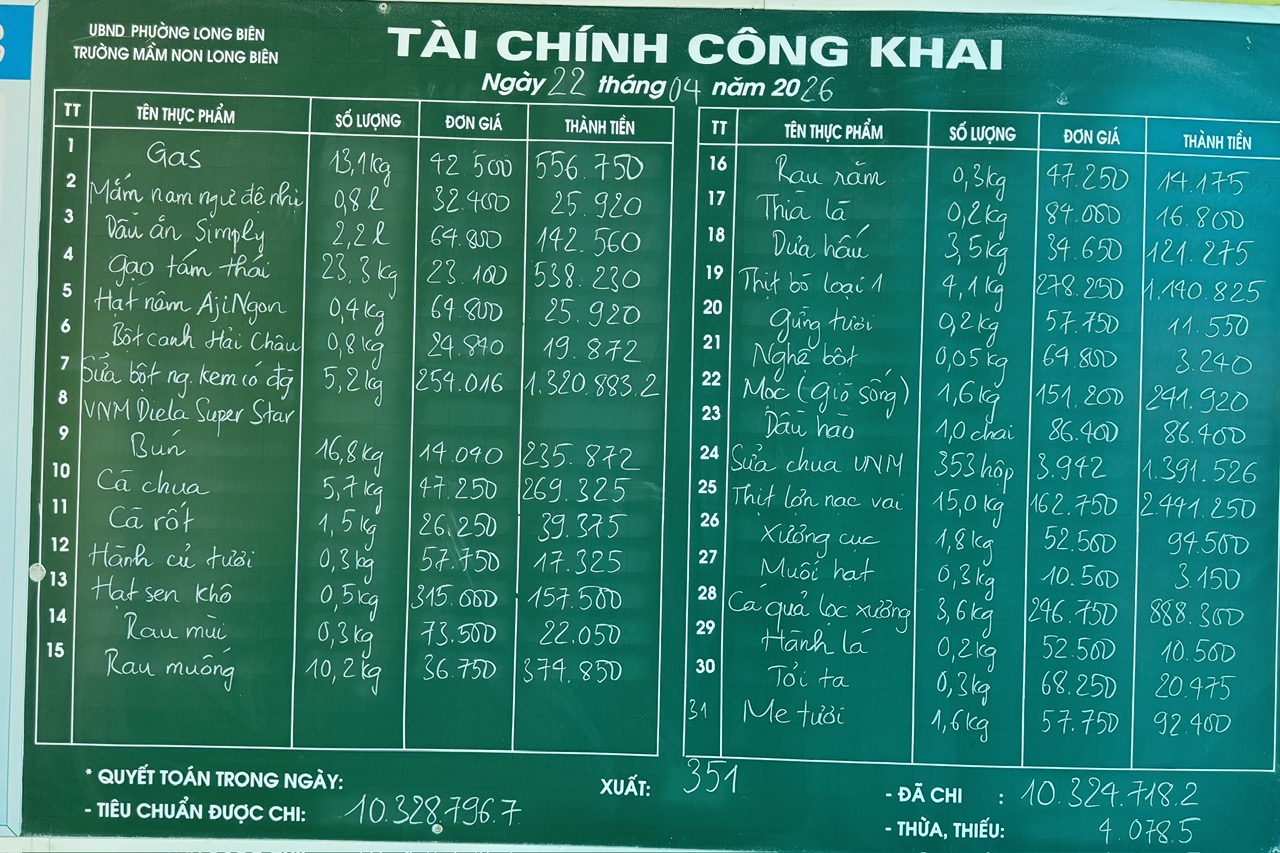 UBND PHƯỜNG LONG BIÊN
TRƯỜNG MẦM NON LONG BIÊN
TÀI CHÍNH CÔNG KHAI
Ngày 22 tháng 04 năm 2026
TT TÊN THỰC PHẨM SỐ LƯỢNG ĐƠN GIÁ THÀNH TIỀN
1 Gas 13,1kg 42.500 556.750
2 Mắm nam ngư đệ nhị 0,8l 32.400 25.920
3 Dầu ăn Simply 2,2l 64.800 142.560
4 Gạo tám thái 23,3kg 23.100 538.230
5 Hạt nêm AjiNgon 0,4kg 64.800 25.920
6 Bột canh Hải Châu 0,8kg 24.840 19.872
7 Sữa bột ng. kem có đg 5,2kg 254.016 1.320.883.2
8 VNM Diela Super Star
9 Bún 16,8kg 14.040 235.872
10 Cà chua 5,7kg 47.250 269.325
11 Cà rốt 1,5kg 26.250 39.375
12 Hành củ tươi 0,3kg 57.750 17.325
13 Hạt sen khô 0,5kg 315.000 157.500
14 Rau mùi 0,3kg 73.500 22.050
15 Rau muống 10,2kg 36.750 374.850
TT TÊN THỰC PHẨM SỐ LƯỢNG ĐƠN GIÁ THÀNH TIỀN
16 Rau răm 0,3kg 47.250 14.175
17 Thìa là 0,2kg 84.000 16.800
18 Dưa hấu 3,5kg 34.650 121.275
19 Thịt bò loại 1 4,1kg 278.250 1.140.825
20 Gừng tươi 0,2kg 57.750 11.550
21 Nghệ bột 0,05kg 64.800 3.240
22 Mọc (Giò sống) 1,6kg 151.200 241.920
23 Dầu hào 1,0 chai 86.400 86.400
24 Sữa chua VNM 353 hộp 3.942 1.391.526
25 Thịt lợn nạc vai 15,0kg 162.750 2.441.250
26 Xương cục 1,8kg 52.500 94.500
27 Muối hạt 0,3kg 10.500 3.150
28 Cá quả lọc xương 3,6kg 246.750 888.300
29 Hành lá 0,2kg 52.500 10.500
30 Tỏi ta 0,3kg 68.250 20.475
31 Me tươi 1,6kg 57.750 92.400
* QUYẾT TOÁN TRONG NGÀY: XUẤT: 351
- TIÊU CHUẨN ĐƯỢC CHI: 10.328.796.7
- ĐÃ CHI : 10.324.718.2
- THỪA, THIẾU: 4.078.5